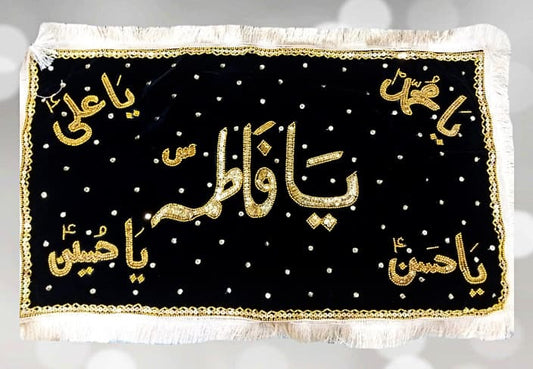 یا محمدؐ
یا علیؑ
یا فاطمہ س
یا حسنؑ
یا حسینؑ